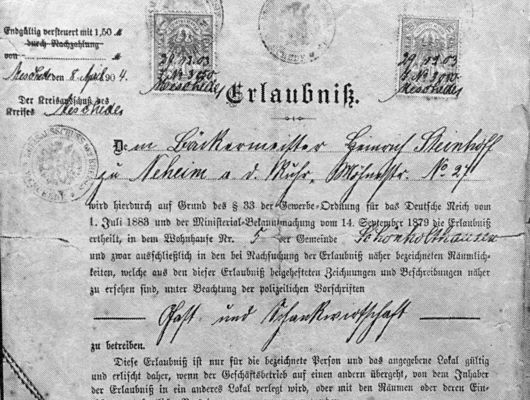 Endgültig versteuert mit 1,50 M
durch Nachzahlung
von
Meschede, den 8 April 1904.
Der Kreisausschuß des
Kreises Meschede
29.12.03
J. No 3050
Meschede
29.12.03
J. No 3050
Meschede
Erlaubniß.
Dem Bäckermeister Heinrich Steinhoff
zu Neheim a. d. Ruhr, Möhnestr. No 27
wird hierdurch auf Grund des § 33 der Gewerbe-Ordnung für das Deutsche Reich vom
1. Juli 1883 und der Ministerial-Bekanntmachung vom 14. September 1879 die Erlaubniß
ertheilt, in dem Wohnhause Nr. 5 der Gemeinde Schönholthausen
und zwar ausschließlich in den bei Nachsuchung der Erlaubniß näher bezeichneten Räumlich-
keiten, welche aus den dieser Erlaubniß beigehefteten Zeichnungen und Beschreibungen näher
zu ersehen sind, unter Beachtung der polizeilichen Vorschriften
Gast- und Schankwirtschaft
zu betreiben.
Diese Erlaubniß ist nur für die bezeichnete Person und das angegebene Lokal gültig
und erlischt daher, wenn der Geschäftsbetrieb auf einen andern übergeht, von dem Inhaber
der Erlaubniß in ein anderes Lokal verlegt wird, oder mit den Räumen oder deren Ein-